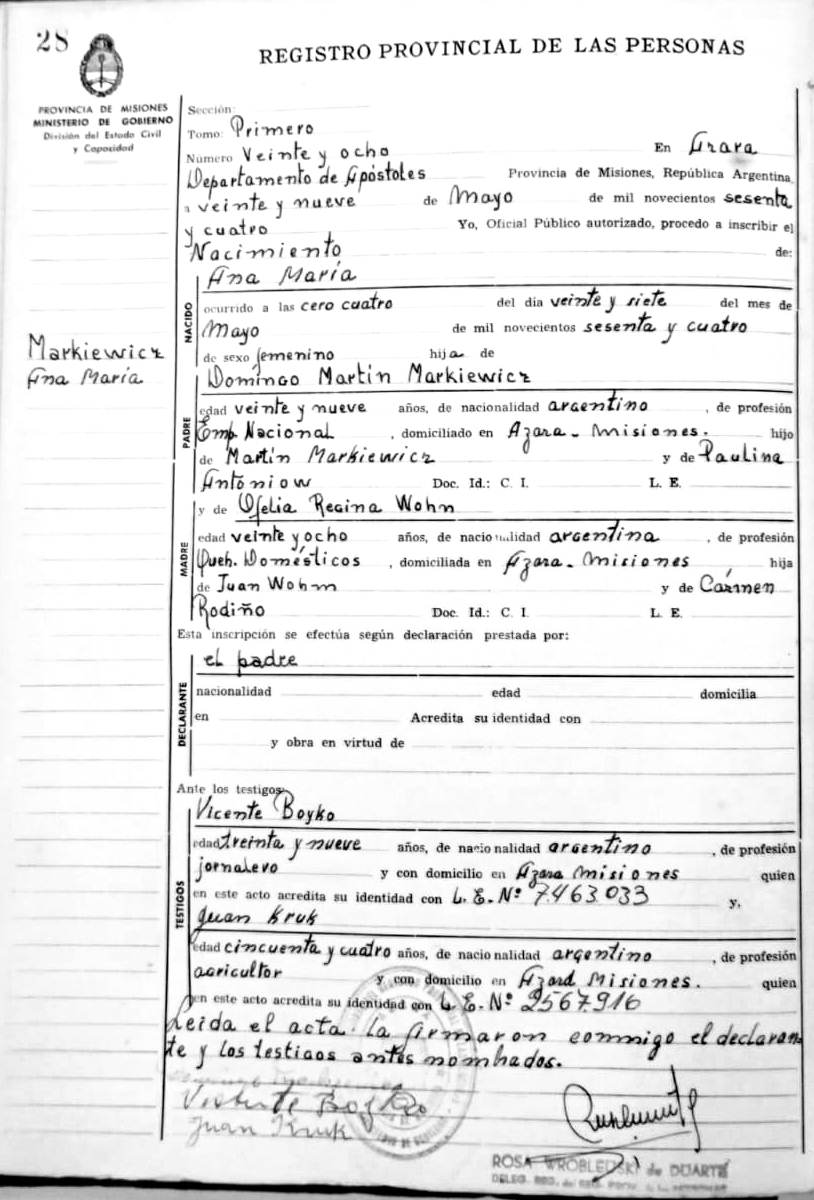 28
REGISTRO PROVINCIAL DE LAS PERSONAS
PROVINCIA DE MISIONES
MINISTERIO DE GOBIERNO
División del Estado Civil
y Capacidad
Sección:
Tomo: Primero
Número Veinte y ocho En Azara
Departamento de Apóstoles Provincia de Misiones, República Argentina,
a veinte y nueve de Mayo de mil novecientos sesenta
y cuatro Yo, Oficial Público autorizado, procedo a inscribir el
Nacimiento de:
Ana María
NACIDO
ocurrido a las cero cuatro del día veinte y siete del mes de
Mayo de mil novecientos sesenta y cuatro
de sexo femenino hija de
Markiewicz
Ana María
Domingo Martín Markiewicz
PADRE
edad veinte y nueve años, de nacionalidad argentino, de profesión
Emp. Nacional, domiciliado en Azara - Misiones. hijo
de Martín Markiewicz y de Paulina
Antoniow Doc. Id.: C. I. L. E.
y de Ofelia Regina Wohn
MADRE
edad veinte y ocho años, de nacionalidad argentina, de profesión
Queh. Domésticos, domiciliada en Azara - Misiones hija
de Juan Wohn y de Cármen
Rodiño Doc. Id.: C. I. L. E.
Esta inscripción se efectúa según declaración prestada por:
el padre
DECLARANTE
nacionalidad edad domicilia
en Acredita su identidad con
y obra en virtud de
Ante los testigos
Vicente Boyko
TESTIGOS
edad treinta y nueve años, de nacionalidad argentino, de profesión
jornalero y con domicilio en Azara Misiones quien
en este acto acredita su identidad con L. E. Nº 7.463.033 y,
Juan Kruk
edad cincuenta y cuatro años, de nacionalidad argentino, de profesión
agricultor y con domicilio en Azara Misiones. quien
en este acto acredita su identidad con L. E. Nº 2567.916
Leida el acta la firmaron conmigo el declaran-
te y los testigos antes nombados.
Vicente Boyko
Juan Kruk
ROSA WROBLEUSKI de DUARTE